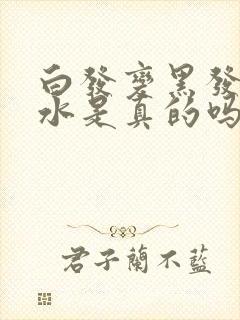 白發變黑發
水是真的吗
君子蘭不藍